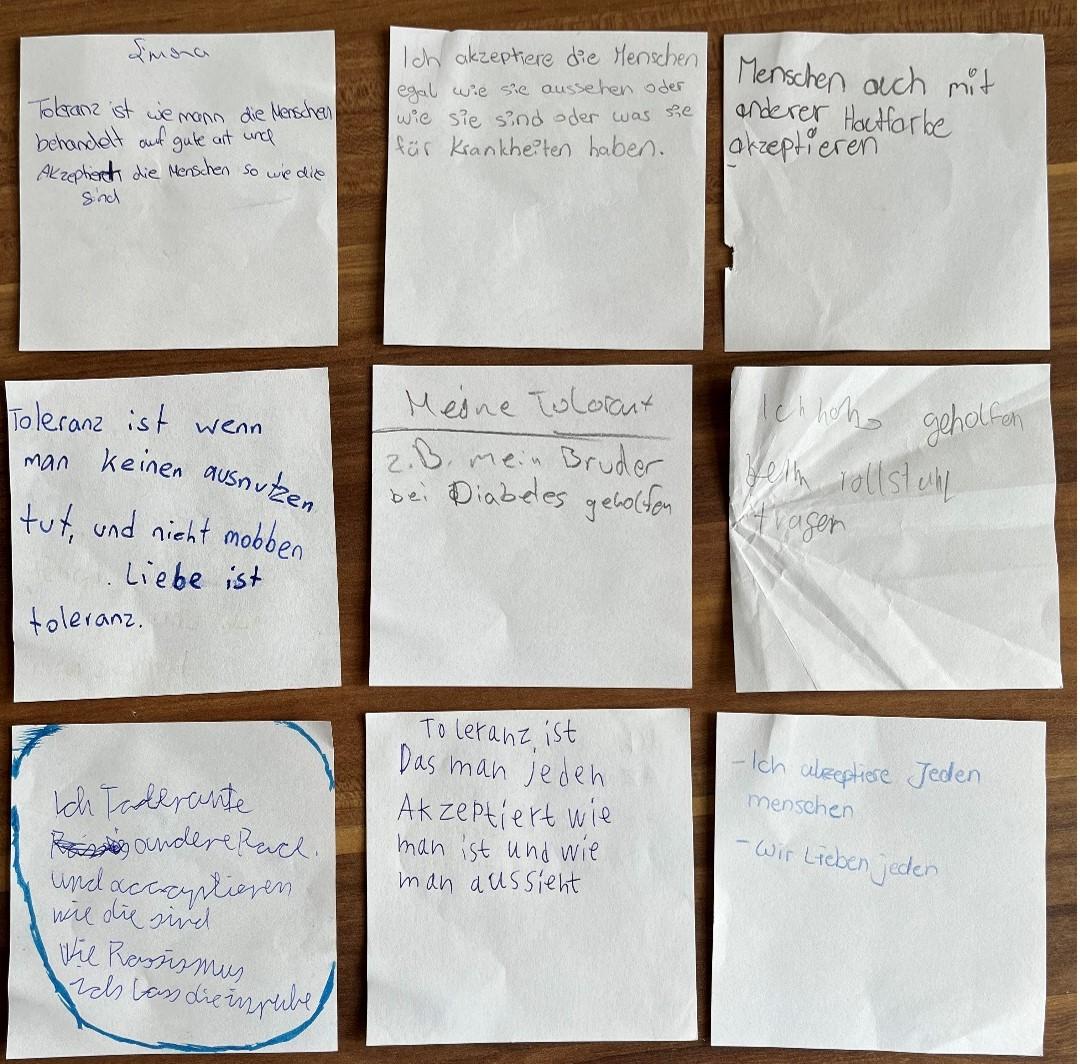 Simona
Toleranz ist wie mann die Menschen
behandelt auf gute art und
die Menschen so wie die
sind
Ich akzeptiere die Menschen
egal wie sie aussehen oder
wie sie sind oder was sie
für Krankheiten haben.
Menschen auch mit
anderer Hautfarbe
akzeptieren
Toleranz ist wenn
man keinen ausnutzen
tut, und nicht mobben
. Liebe ist
toleranz.
Meine
z.B. mein Bruder
bei Diabetes geholfen
Ich geholfen
beim rollstuhl
tragen
Ich
andere
und
wie die sind
Wie Rassismus
Ich lass die
Toleranz ist
Das man jeden
Akzeptiert wie
man ist und wie
man aussieht
- Ich akzeptiere Jeden
menschen
- Wir Lieben jeden